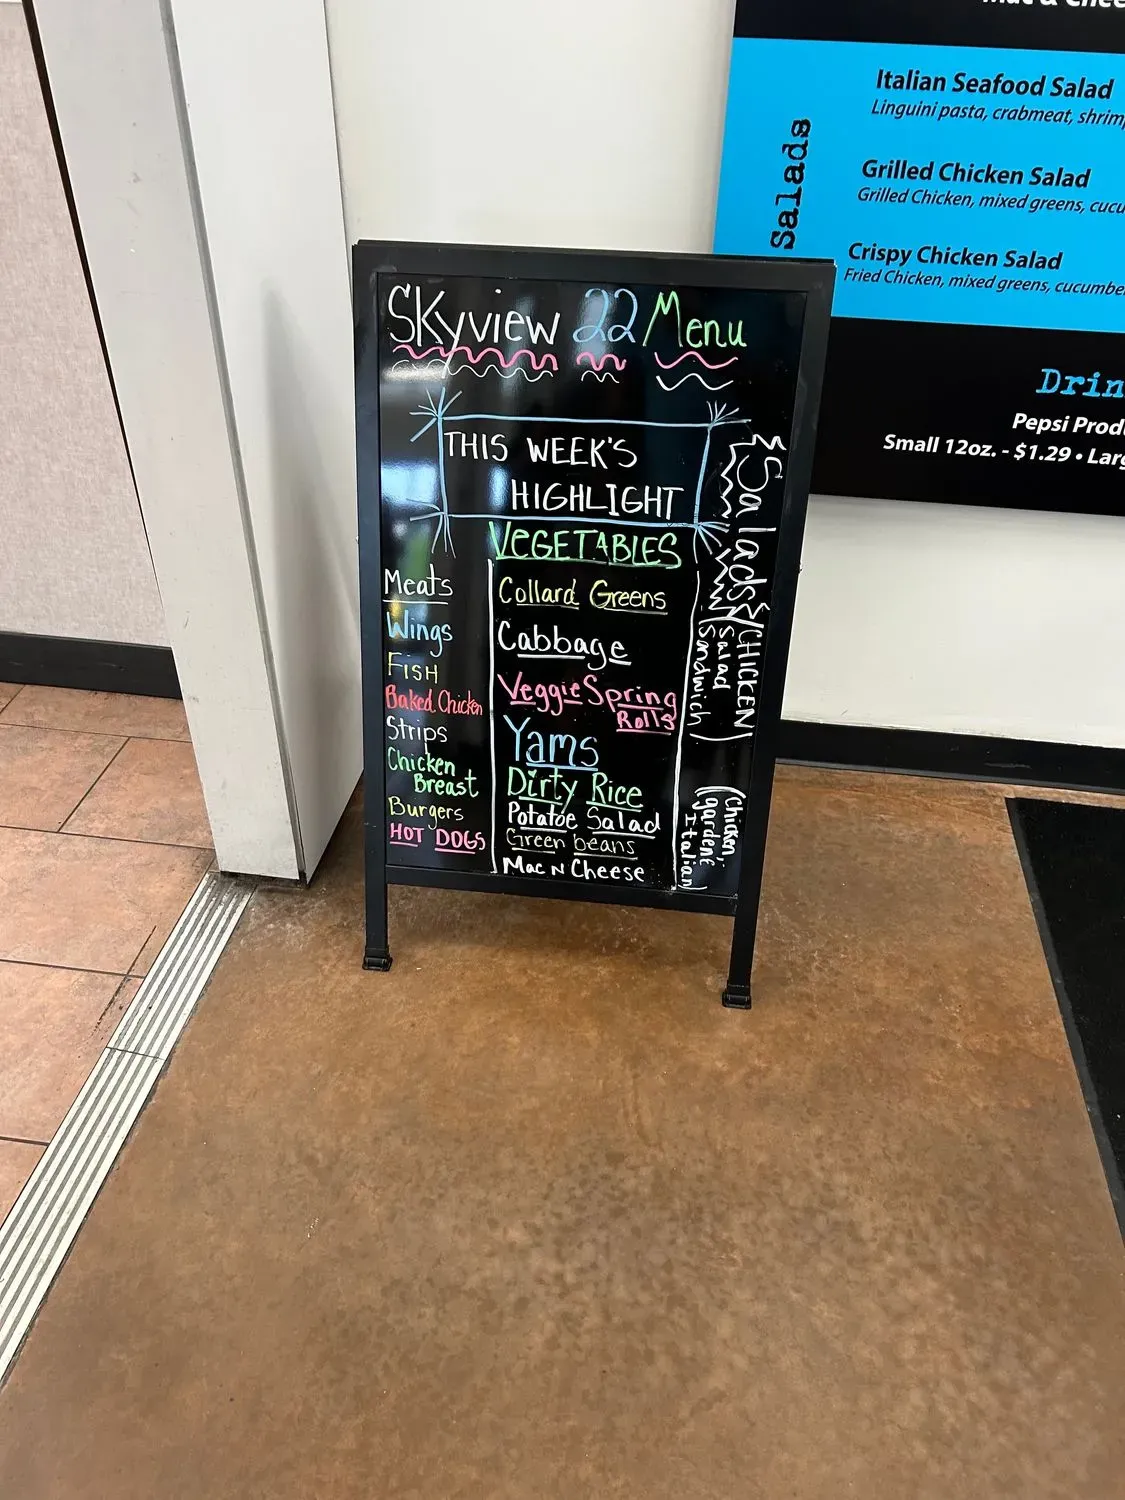 SKyview 22 Menu
THIS WEEK'S
HIGHLIGHT
VEGETABLES
Meats
Wings
FISH
Baked Chicken
Strips
Chicken
Breast
Burgers
HOT DOGS
Collard Greens
Cabbage
Veggie Spring
Rolls
Yams
Dirty Rice
Potatoe Salad
Green beans
Mac N Cheese
Salads
(CHICKEN)
Salad
(Sandwich)
(Chicken,
garden,
Italian)
Mac & Chee
Salads
Italian Seafood Salad
Linguini pasta, crabmeat, shrim
Grilled Chicken Salad
Grilled Chicken, mixed greens, cucu
Crispy Chicken Salad
Fried Chicken, mixed greens, cucumbe
Drin
Pepsi Produ
Small 12oz. - $1.29 • Larg